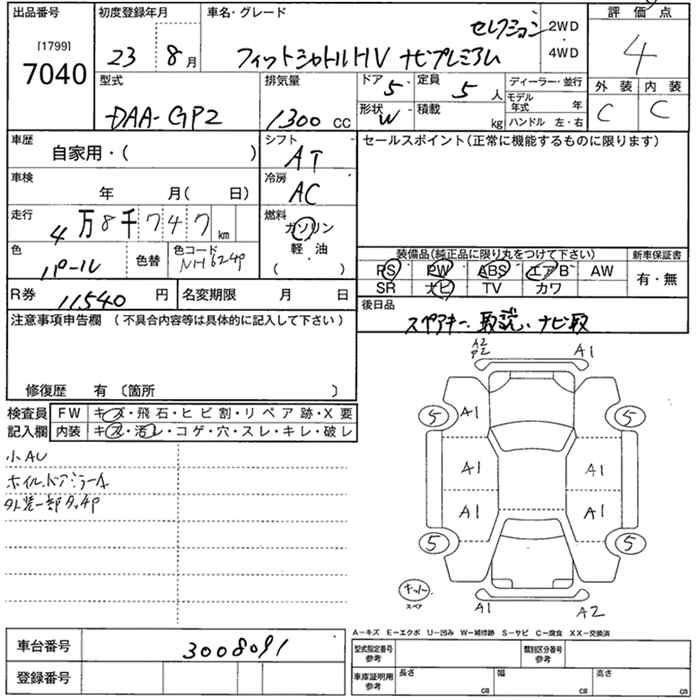 出品番号
[1799]
7040
初度登録年月
23 8月
車名・グレード
セレクション
フィットシャトルHV ナビプレミアム
2WD
4WD
評価点
4
外装 内装
C C
型式
DAA-GP2
排気量
1300 CC
ドア 5
定員 5 人
形状 W
積載 kg
ディーラー・並行
モデル年式 年
ハンドル 左・右
車歴
自家用・( )
シフト
AT
セールスポイント(正常に機能するものに限ります)
車検
年 月( 日)
冷房
AC
走行
4万8千747km
燃料
ガソリン
軽・油
( )
色
パール
色替
色コード
NH624P
装備品(純正品に限り丸をつけて下さい)
新車保証書
PS PW ABS エアB AW
SR ナビ TV カワ
有・無
R券 11540 円
名変期限 月 日
後日品
スペアキー、取説、ナビ取
注意事項申告欄 (不具合内容等は具体的に記入して下さい)
修復歴 有〔箇所 〕
検査員
記入欄
FW キズ・飛石・ヒビ割・リペア跡・X要
内装 キズ・汚レ・コゲ・穴・スレ・キレ・破レ
小AU
ホイル、ドアミラーA
外装一部タッチP
A2
P2
A1
5 A1 5
A1 A1
A1 A1
5 5
キット
スペア
A1 A2
A-キズ E-エクボ U-凹み W-補修跡 S-サビ C-腐食 XX-交換済
車台番号
3008091
登録番号
型式指定番号
参考
類別区分番号
参考
車庫証明用
参考
長さ cm
幅 cm
高さ cm